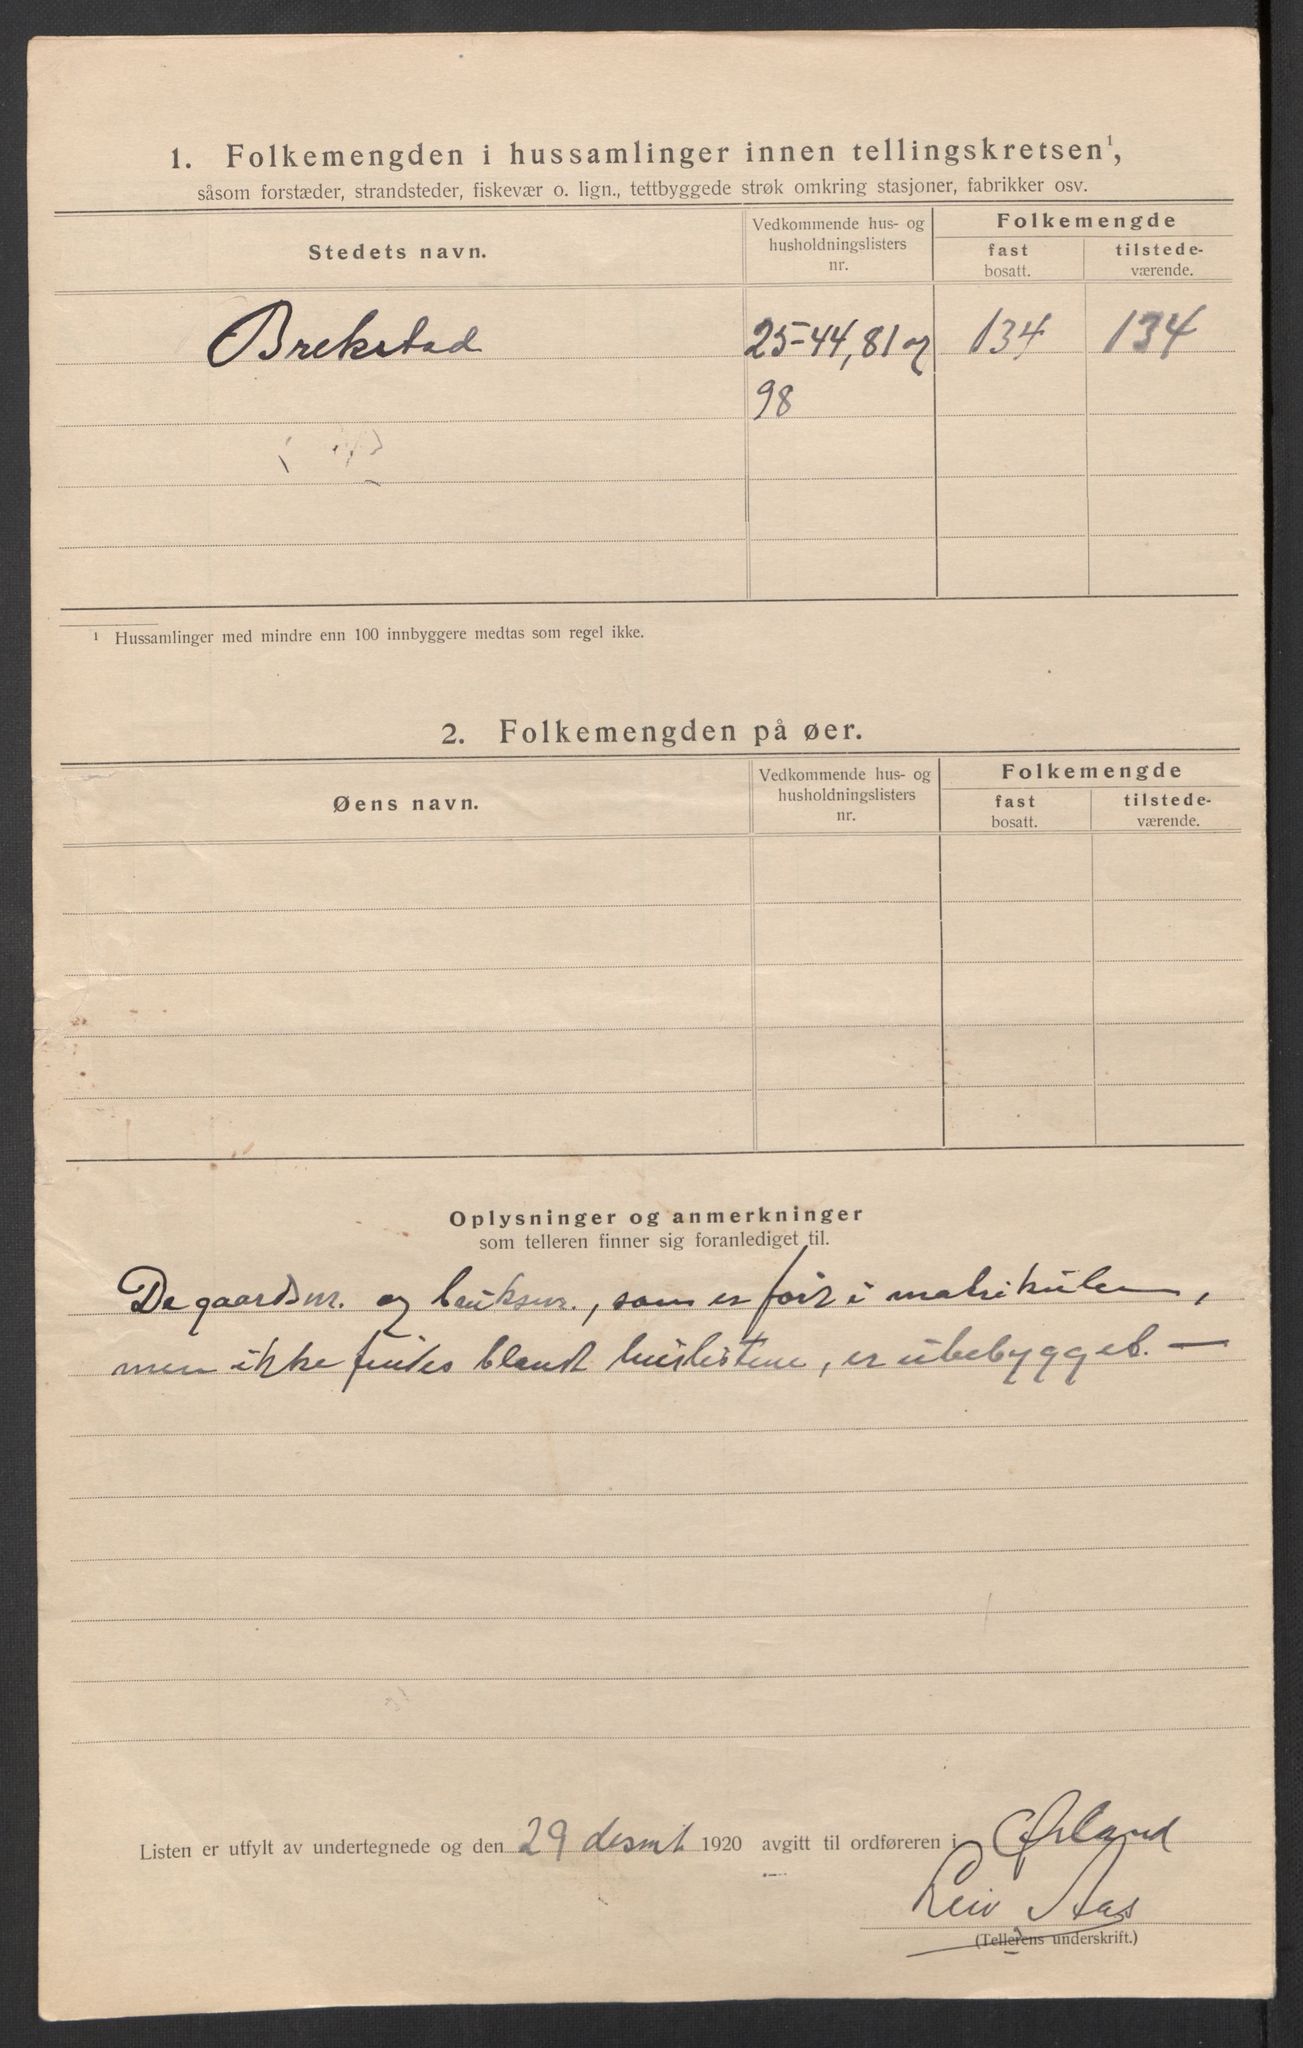 1. Folkemengden i hussamlinger innen tellingskretsen¹,
såsom forstæder, strandsteder, fiskevær o. lign., tettbyggede strøk omkring stasjoner, fabrikker osv.
Stedets navn.
Vedkommende hus- og
husholdningslisters
nr.
Folkemengde
fast
bosatt.
tilstede-
værende.
Brekstad 25-44, 81 og 134 134
98
¹ Hussamlinger med mindre enn 100 innbyggere medtas som regel ikke.
2. Folkemengden på øer.
Øens navn.
Vedkommende hus- og
husholdningslisters
nr.
Folkemengde
fast
bosatt.
tilstede-
værende.
Oplysninger og anmerkninger
som telleren finner sig foranlediget til.
De gaardsnr. og bruksnr., som er ført i matrikulen,
men ikke findes blandt huslistene, er ubebygget. —
Listen er utfylt av undertegnede og den 29 desmt 1920 avgitt til ordføreren i Ørland
Leiv Aas
(Tellerens underskrift.)